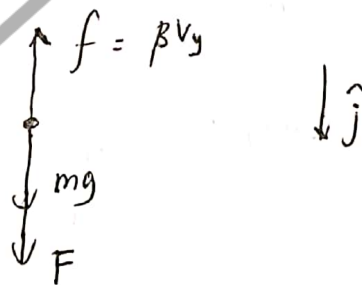 f = βVy
ĵ
mg
F